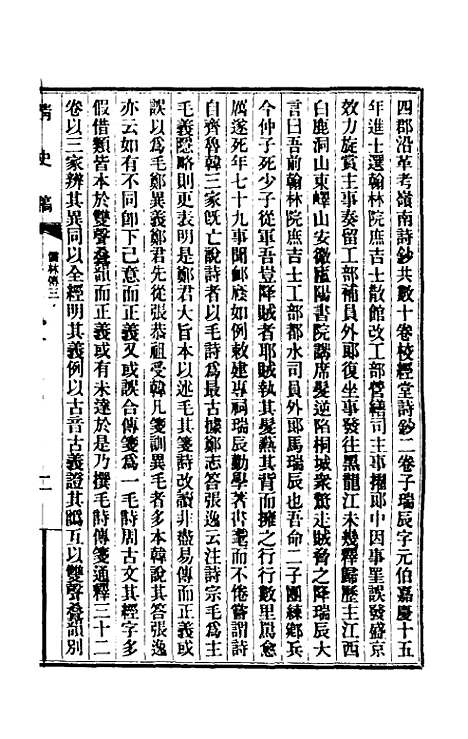 四郡沿革考嶺南詩鈔共數十卷校經堂詩鈔二卷子瑞辰字元伯嘉慶十五
年進士選翰林院庶吉士散館改工部營繕司主事擢郎中因事罣誤發盛京
效力旋賞主事奏留工部補員外郎復坐事發往黑龍江未幾釋歸歷主江西
白鹿洞山東嶧山安徽廬陽書院講席髮逆陷桐城衆驚走賊脅之降瑞辰大
言曰吾前翰林院庶吉士工部都水司員外郎馬瑞辰也吾命二子團練鄉兵
今仲子死少子從軍吾豈降賊者耶賊執其髮爇其背而擁之行行數里罵愈
厲遂死年七十九事聞卹廕如例敕建專祠瑞辰勤學著書耄而不倦嘗謂詩
自齊魯韓三家旣亡說詩者以毛詩爲最古據鄭志答張逸云注詩宗毛爲主
毛義隱略則更表明是鄭君大旨本以述毛其箋詩改讀非盡易傳而正義或
誤以爲毛鄭異義鄭君先從張恭祖受韓凡箋訓異毛者多本韓說其答張逸
亦云如有不同卽下己意而正義又或誤合傳箋爲一毛詩周古文其經字多
假借類皆本於雙聲叠韻而正義或有未達於是乃撰毛詩傳箋通釋三十二
卷以三家辨其異同以全經明其義例以古音古義證其譌互以雙聲叠韻別
清史稿
儒林傳三
二